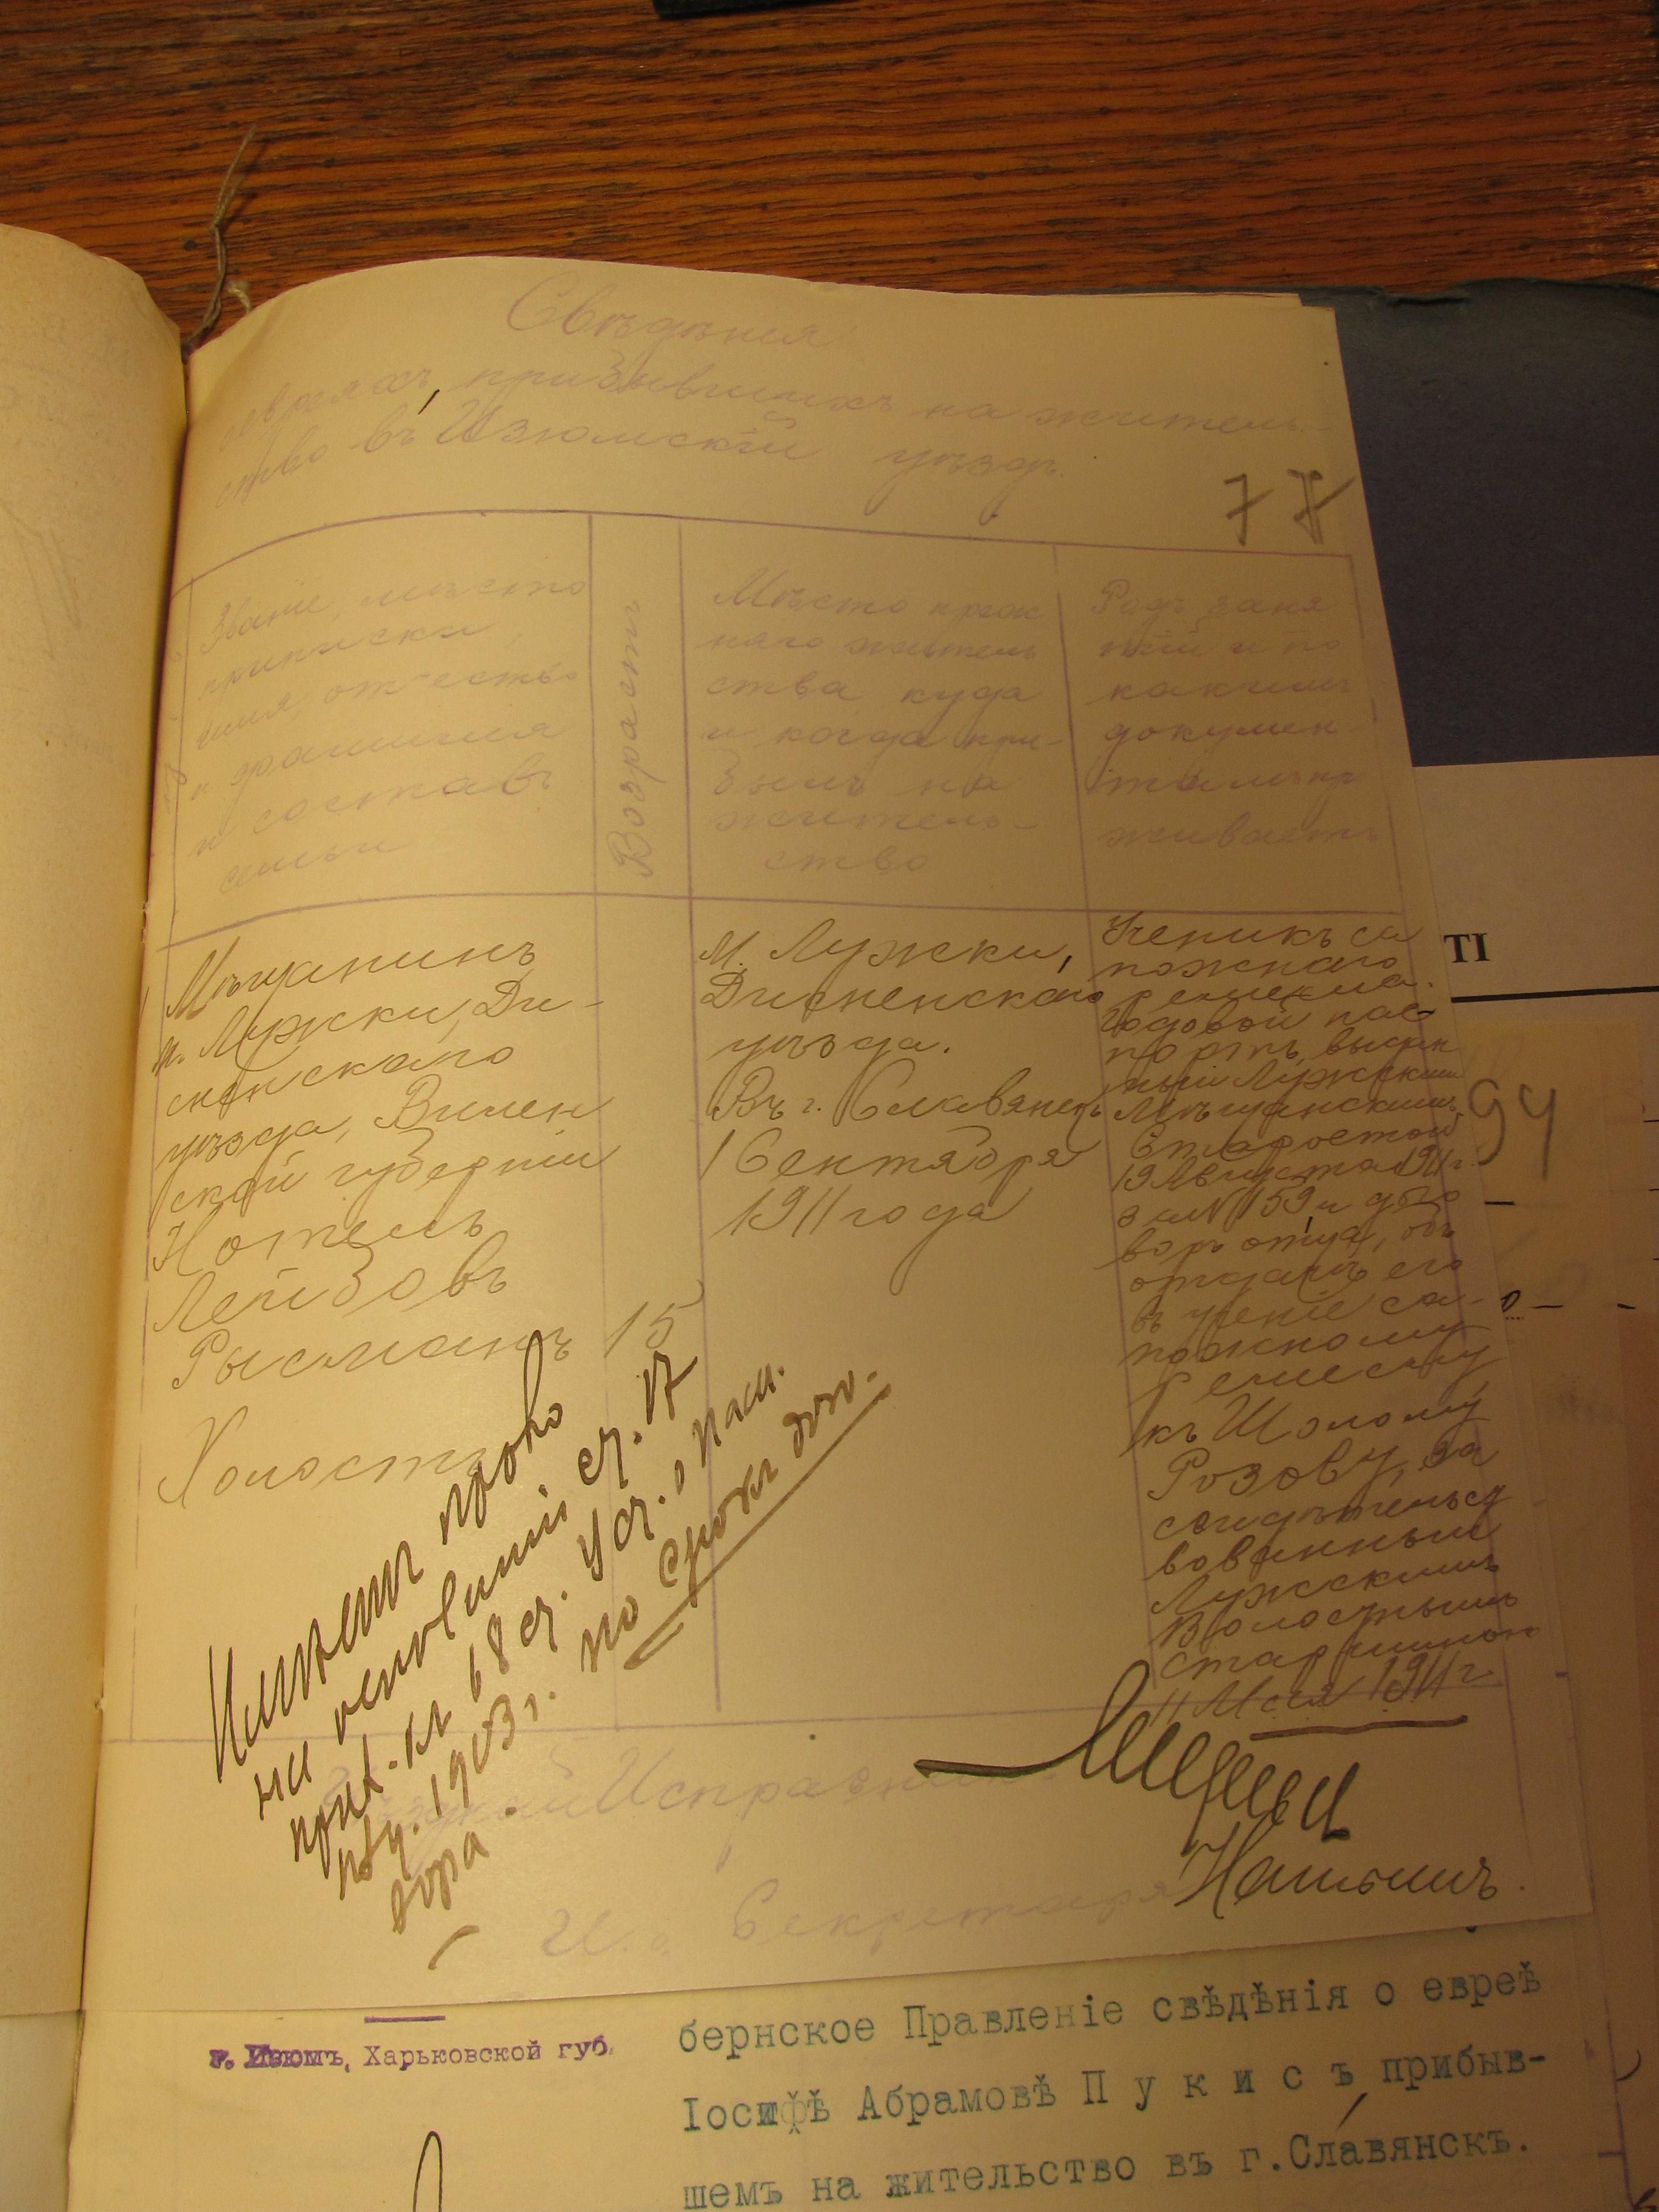 Свѣдѣнія
о евреяхъ, прибывшихъ на житель-
ство въ Изюмскій уѣздъ.
77
Званіе, мѣсто
приписки,
имя, отчество
и фамилія
и составъ
семьи
Возрастъ
Мѣсто преж
няго житель
ства, куда
и когда при-
былъ на
житель-
ство
Родъ заня
тій и по
какимъ
докумен
тамъ пр
живаетъ
Мѣщанинъ
м. Лужки, Ди-
сненскаго
уѣзда, Вилен
ской губерніи
Нотель
Лейбовъ
Рысманъ
Холостъ
15
м. Лужки,
Дисненскаго
уѣзда.
Въ г. Славянскъ
1 Сентября
1911 года
Ученикъ са
пожнаго
ремесла.
Годовой пас
портъ, выдан
ный Лужскимъ
Мѣщанскимъ
Старостой
19 Августа 1911 г.
за № 159 и дого
воръ отца, объ
отдачѣ его
въ ученіе са-
пожному
ремеслу
къ Шолому
Розову, за
свидѣтельст
вованный
Лужскимъ
Волостнымъ
старшиною
11 Мая 1911 г.
Имѣетъ право
на основаніи ст. 17
прил. къ 68 ст. Уст. о Пасп.
1903 г. по срокъ дого-
вора
Исправникъ
И. д. Секретаря
94
ТІ
г. Изюмъ, Харьковской губ.
бернское Правленіе свѣдѣнія о евреѣ
Іосифѣ Абрамовѣ П у к и с ъ прибыв-
шемъ на жительство въ г.Славянскъ.